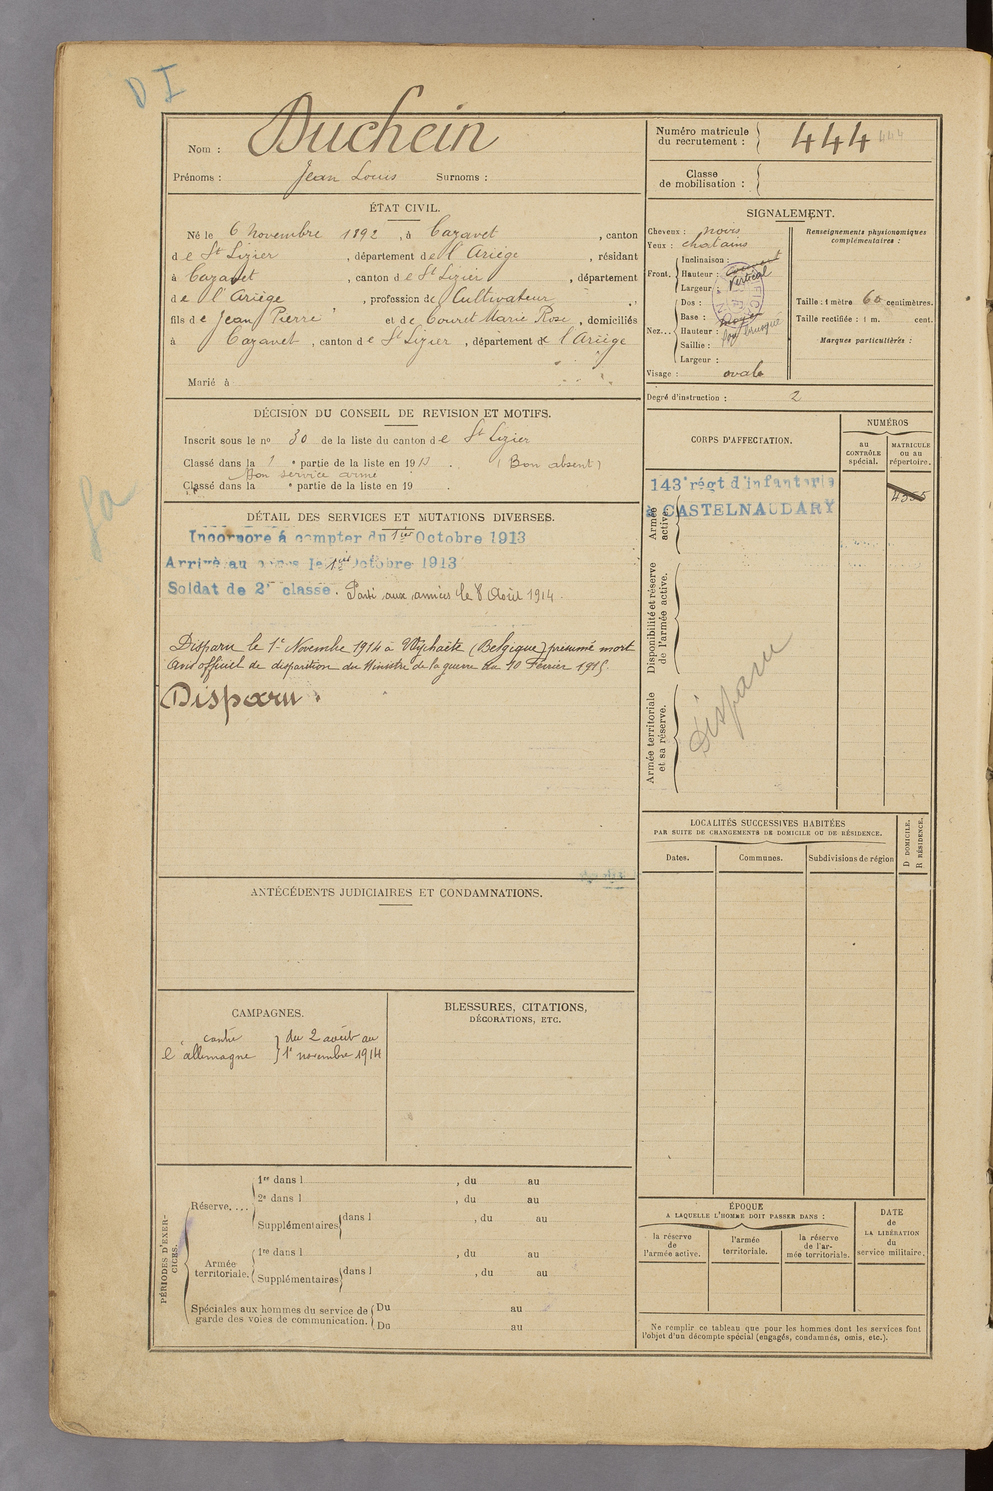 D I
Nom : Duchein
Prénoms : Jean Louis Surnoms :
Numéro matricule du recrutement : 444 444
Classe de mobilisation :
ÉTAT CIVIL.
Né le 6 Novembre 1892, à Cazavet, canton
de St Lizier, département de l'Ariège, résidant
à Cazavet, canton de St Lizier, département
de l'Ariège, profession de Cultivateur,
fils de Jean Pierre et de Couret Marie Rose, domiciliés
à Cazavet, canton de St Lizier, département de l'Ariège
Marié à
SIGNALEMENT.
Cheveux : noirs
Yeux : chatains
Front. Inclinaison :
Hauteur : Vertical
Largeur :
Nez... Dos :
Base : moyen
Hauteur :
Saillie :
Largeur :
Visage : ovale
Renseignements physionomiques complémentaires :
Taille : 1 mètre 60 centimètres.
Taille rectifiée : 1 m. cent.
Marques particulières :
Degré d'instruction : 2
DÉCISION DU CONSEIL DE REVISION ET MOTIFS.
Inscrit sous le nº 30 de la liste du canton de St Lizier
Classé dans la 1 e partie de la liste en 1913. (Bon absent)
Bon service armé
Classé dans la e partie de la liste en 19 .
CORPS D'AFFECTATION.
NUMÉROS
au CONTRÔLE spécial.
MATRICULE ou au répertoire.
Armée active.
143e régt d'infanterie
à CASTELNAUDARY
4355
Disponibilité et réserve de l'armée active.
Armée territoriale et sa réserve.
Disparu
DÉTAIL DES SERVICES ET MUTATIONS DIVERSES.
Incorporé à compter du 1er Octobre 1913
Arrivé au corps le 1er Octobre 1913
Soldat de 2e classe. Parti aux armées le 8 Août 1914.
Disparu le 1er Novembre 1914 à Wytchaëte (Belgique) présumé mort
Avis officiel de disparition du Ministre de la guerre du 10 Février 1915.
Disparu.
LOCALITÉS SUCCESSIVES HABITÉES
PAR SUITE DE CHANGEMENTS DE DOMICILE OU DE RÉSIDENCE.
Dates.
Communes.
Subdivisions de région
D DOMICILE.
R RÉSIDENCE.
ANTÉCÉDENTS JUDICIAIRES ET CONDAMNATIONS.
CAMPAGNES.
contre l'allemagne } du 2 août au 1er novembre 1914
BLESSURES, CITATIONS,
DÉCORATIONS, ETC.
PÉRIODES D'EXERCICES.
Réserve....
1re dans l , du au
2e dans l , du au
Supplémentaires dans l , du au
Armée territoriale.
1re dans l , du au
Supplémentaires dans l , du au
Spéciales aux hommes du service de garde des voies de communication.
Du au
Du au
ÉPOQUE
A LAQUELLE L'HOMME DOIT PASSER DANS :
la réserve de l'armée active.
l'armée territoriale.
la réserve de l'armée territoriale.
DATE de LA LIBÉRATION du service militaire.
Ne remplir ce tableau que pour les hommes dont les services font
l'objet d'un décompte spécial (engagés, condamnés, omis, etc.).